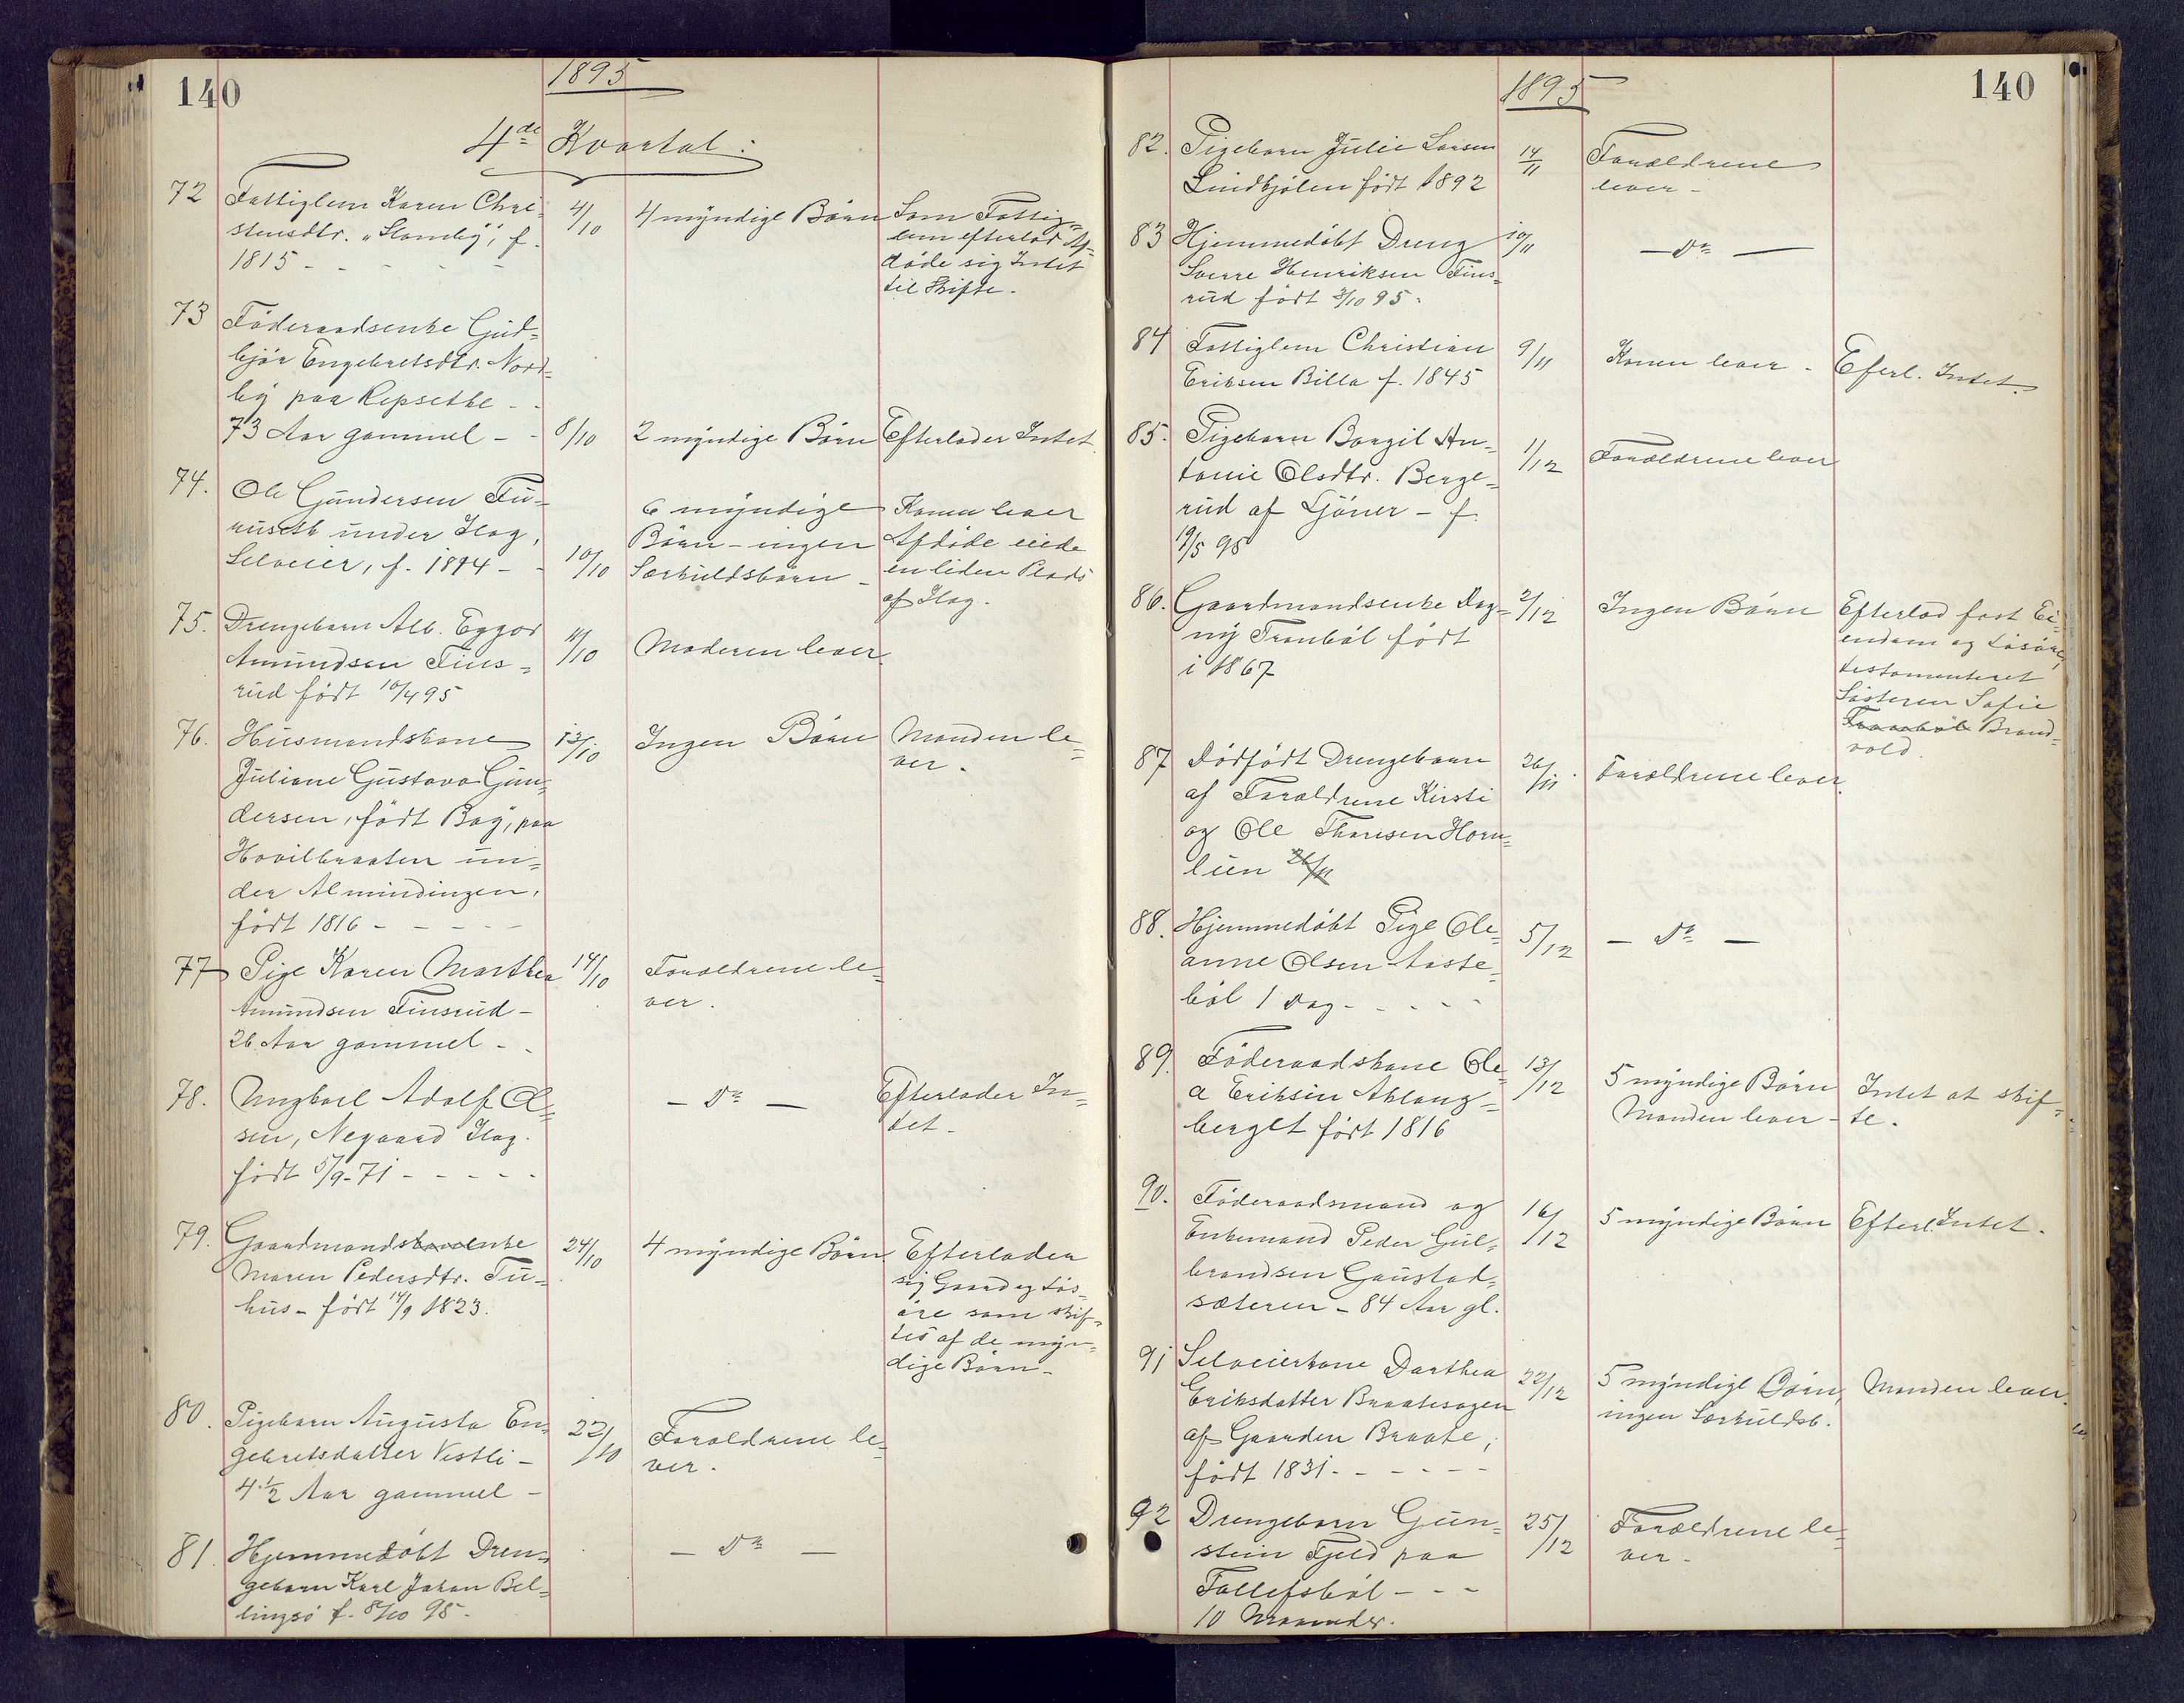 140
1895
4de Kvartal:
72 Fattiglem Karen Chri-
stensdtr. "Slomby", f.
1815 - - - - -
4/10
4 myndige Børn
Som Fattig-
lem efterlod Af-
døde sig Intet
til Skifte.
73 Föderaadsenke Gud-
björ Engebretsdtr. Nord-
by paa Repsethe - -
73 Aar gammel - -
8/10
2 myndige Børn
Efterlader Intet
74. Ole Gundersen Fu-
ruseth under Ilag,
Selveier, f. 1894 - -
10/10
6 myndige
Børn - ingen
Særkuldsbørn -
Konen lever
Afdöde eiede
en liden Plads
af Ilag.
75. Drengebarn Alb. Eggor
Amundsen Fins-
rud födt 10/4 95
11/10
Moderen lever
76. Husmandskone
Juliane Gustava Gun-
dersen, födt Bay, paa
Hovilbraaten un-
der Almindingen,
födt 1816 - - - - -
13/10
Ingen Børn
Manden le-
ver -
77 Pige Karen Marthea
Amundsen Finsrud -
26 Aar gammel - -
14/10
Forældrene le-
ver.
78. Ungkarl Adolf Ol-
sen, Negaard Ilag.
födt 5/9-71 - - - - -
- do -
Efterlader In-
tet -
79. Gaardmandskoneenke
Maren Pedersdtr. Tu-
hus - födt 14/9 1823.
24/10
4 myndige Børn
Efterlader
sig Gaard og Løs-
øre som skif-
tes af de myn-
dige Børn -
80. Pigebarn Augusta En-
gebretsdatter Vestli -
4 1/2 Aar gammel -
22/10
Forældrene le-
ver.
81. Hjemmedöbt Dren-
gebarn Karl Johan Bel-
lingsö f. 8/10 95-
- do -
140
1895
82. Pigebarn Julie Larsen
Lindbjölen födt 1892
14/11
Forældrene
lever -
83 Hjemmedöbt Dreng
Sverre Henriksen Fins-
rud födt 3/10 95.
10/11
- do -
84 Fattiglem Christian
Eriksen Billa f. 1845
9/11
Konen lever -
Eferl. Intet.
85. Pigebarn Borgil An-
tonie Olsdtr. Berge-
rud af Sjöner - f.
19/5 95
1/12
Forældrene lever
86. Gaardmandsenke Dag-
ny Tranböl födt
i 1867
2/12
Ingen Børn
Efterlod fast Ei-
endom og Løsøre,
testamenteret
Søsteren Sofie
Tranböl Brand-
vold.
87 Dödfödt Drengebarn
af Forældrene Kirsti
og Ole Thoresen Horn-
lien 26/11
26/11.
Forældrene lever
88. Hjemmedöbt Pige Ole-
anne Olsen Aaste-
böl 1 Dag - - - -
5/12
- do -
89. Föderaadskone Ole-
a Eriksen Aklang-
berget födt 1816
13/12
5 myndige Børn
Manden lever -
Intet at skif-
te.
90. Föderaadsmand og
Enkemand Peder Gul-
brandsen Gaustad-
sæteren - 84 Aar gl.
16/12
5 myndige Børn
Efterl. Intet.
91 Selveierkone Dorthea
Eriksdatter Braatesagen
af Gaarden Braate,
födt 1831 - - - - -
22/12
5 myndige Børn,
ingen Særkuldsb.
Manden lever.
92 Drengebarn Gun-
stein Fjeld paa
Tollefsböl - - -
10 Maaneder.
25/12
Forældrene le-
ver -